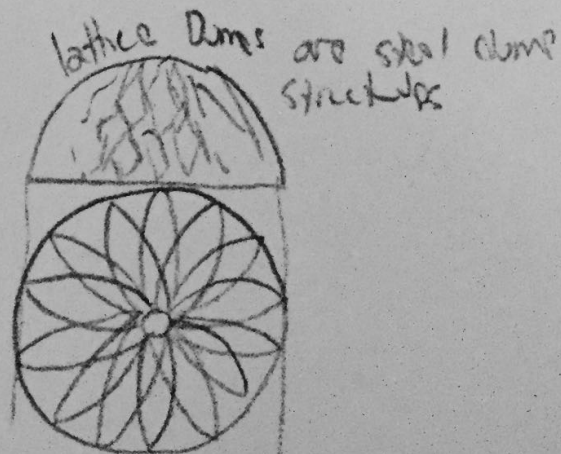 lattice Dumes are steel dume
structups